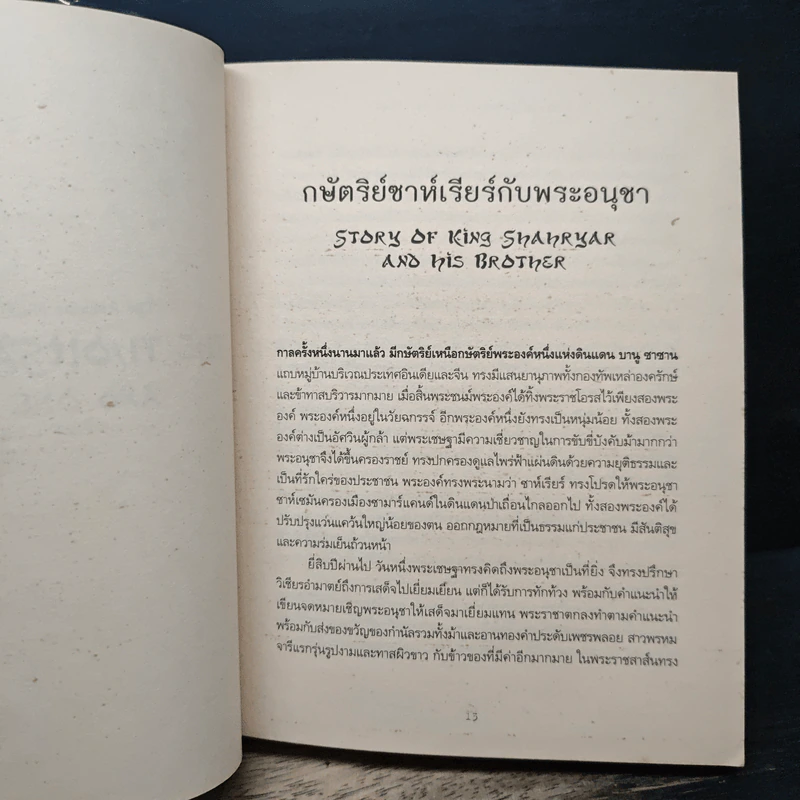 กษัตริย์ซาห์เรียร์กับพระอนุชา
STORY OF KING SHAHRYAR
AND HIS BROTHER
กาลครั้งหนึ่งนานมาแล้ว มีกษัตริย์เหนือกษัตริย์พระองค์หนึ่งแห่งดินแดน บานู ซาซาน
แถบหมู่บ้านบริเวณประเทศอินเดียและจีน ทรงมีแสนยานุภาพทั้งกองทัพเหล่าองครักษ์
และข้าทาสบริวารมากมาย เมื่อสิ้นพระชนม์พระองค์ได้ทิ้งพระราชโอรสไว้เพียงสองพระ
องค์ พระองค์หนึ่งอยู่ในวัยฉกรรจ์ อีกพระองค์หนึ่งยังทรงเป็นหนุ่มน้อย ทั้งสองพระ
องค์ต่างเป็นอัศวินผู้กล้า แต่พระเชษฐามีความเชี่ยวชาญในการขับขี่บังคับม้ามากกว่า
พระอนุชาจึงได้ขึ้นครองราชย์ ทรงปกครองดูแลไพร่ฟ้าแผ่นดินด้วยความยุติธรรมและ
เป็นที่รักใคร่ของประชาชน พระองค์ทรงพระนามว่า ซาห์เรียร์ ทรงโปรดให้พระอนุชา
ซาห์เซมันครองเมืองซามาร์แคนด์ในดินแดนป่าเถื่อนไกลออกไป ทั้งสองพระองค์ได้
ปรับปรุงแว่นแคว้นใหญ่น้อยของตน ออกกฎหมายที่เป็นธรรมแก่ประชาชน มีสันติสุข
และความร่มเย็นถ้วนหน้า
ยี่สิบปีผ่านไป วันหนึ่งพระเชษฐาทรงคิดถึงพระอนุชาเป็นที่ยิ่ง จึงทรงปรึกษา
วิเชียรอำมาตย์ถึงการเสด็จไปเยี่ยมเยียน แต่ก็ได้รับการทักท้วง พร้อมกับคำแนะนำให้
เขียนจดหมายเชิญพระอนุชาให้เสด็จมาเยี่ยมแทน พระราชาตกลงทำตามคำแนะนำ
พร้อมกับส่งของขวัญของกำนัลรวมทั้งม้าและอานทองคำประดับเพชรพลอย สาวพรหม
จารีแรกรุ่นรูปงามและทาสผิวขาว กับข้าวของที่มีค่าอีกมากมาย ในพระราชสาส์นทรง
15